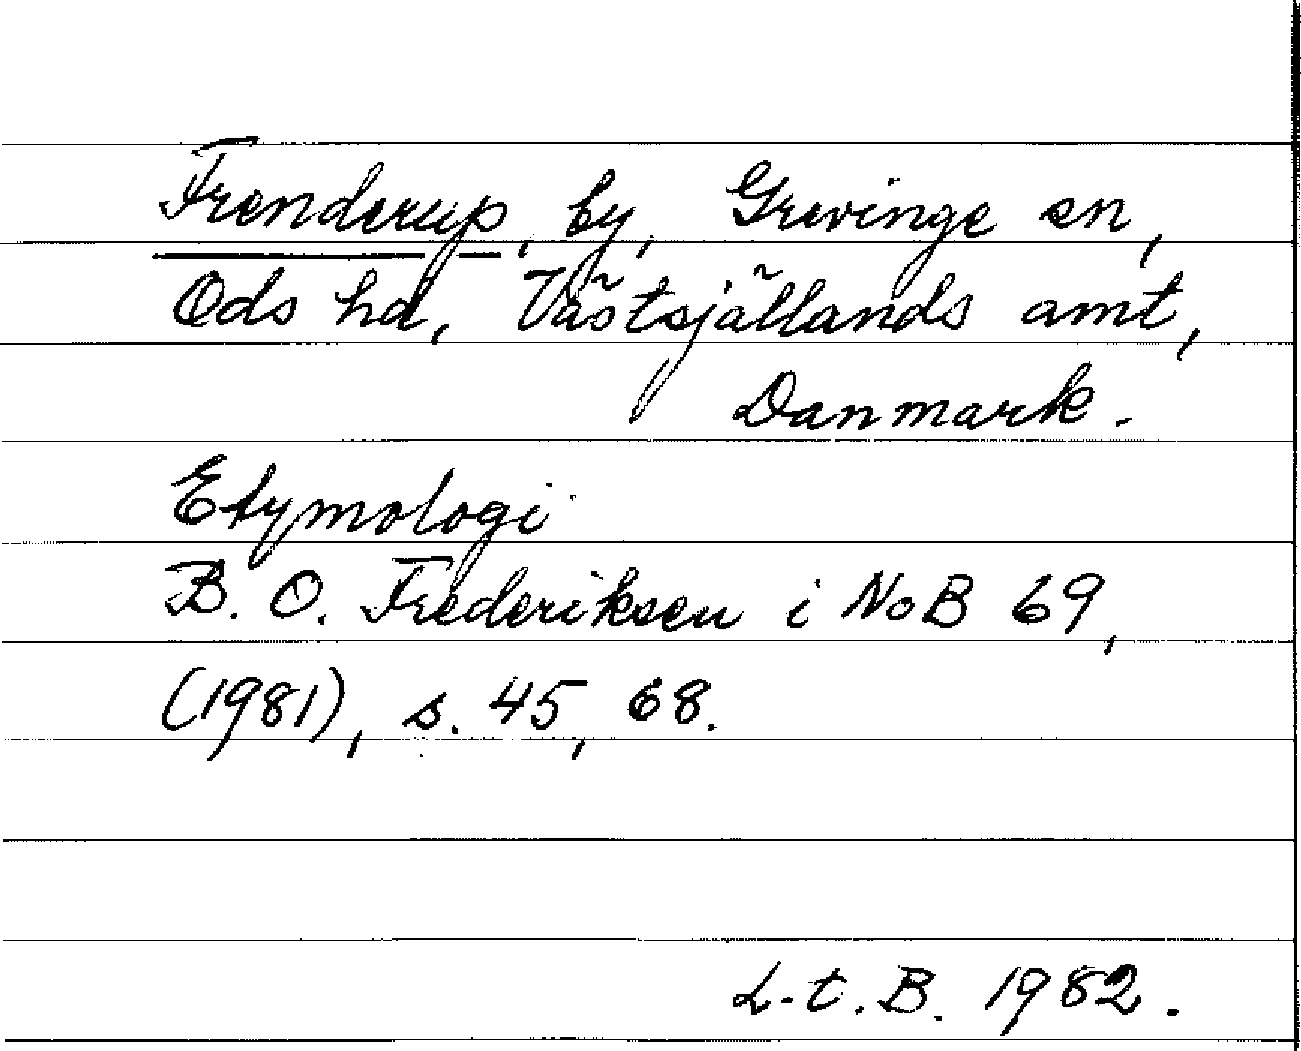 Frenderup, by, Grevinge sn,
Ods hd, Västsjällands amt,
Danmark.
Etymologi
B. O. Frederiksen i NoB 69,
(1981), s. 45, 68.
L. t. B. 1982.